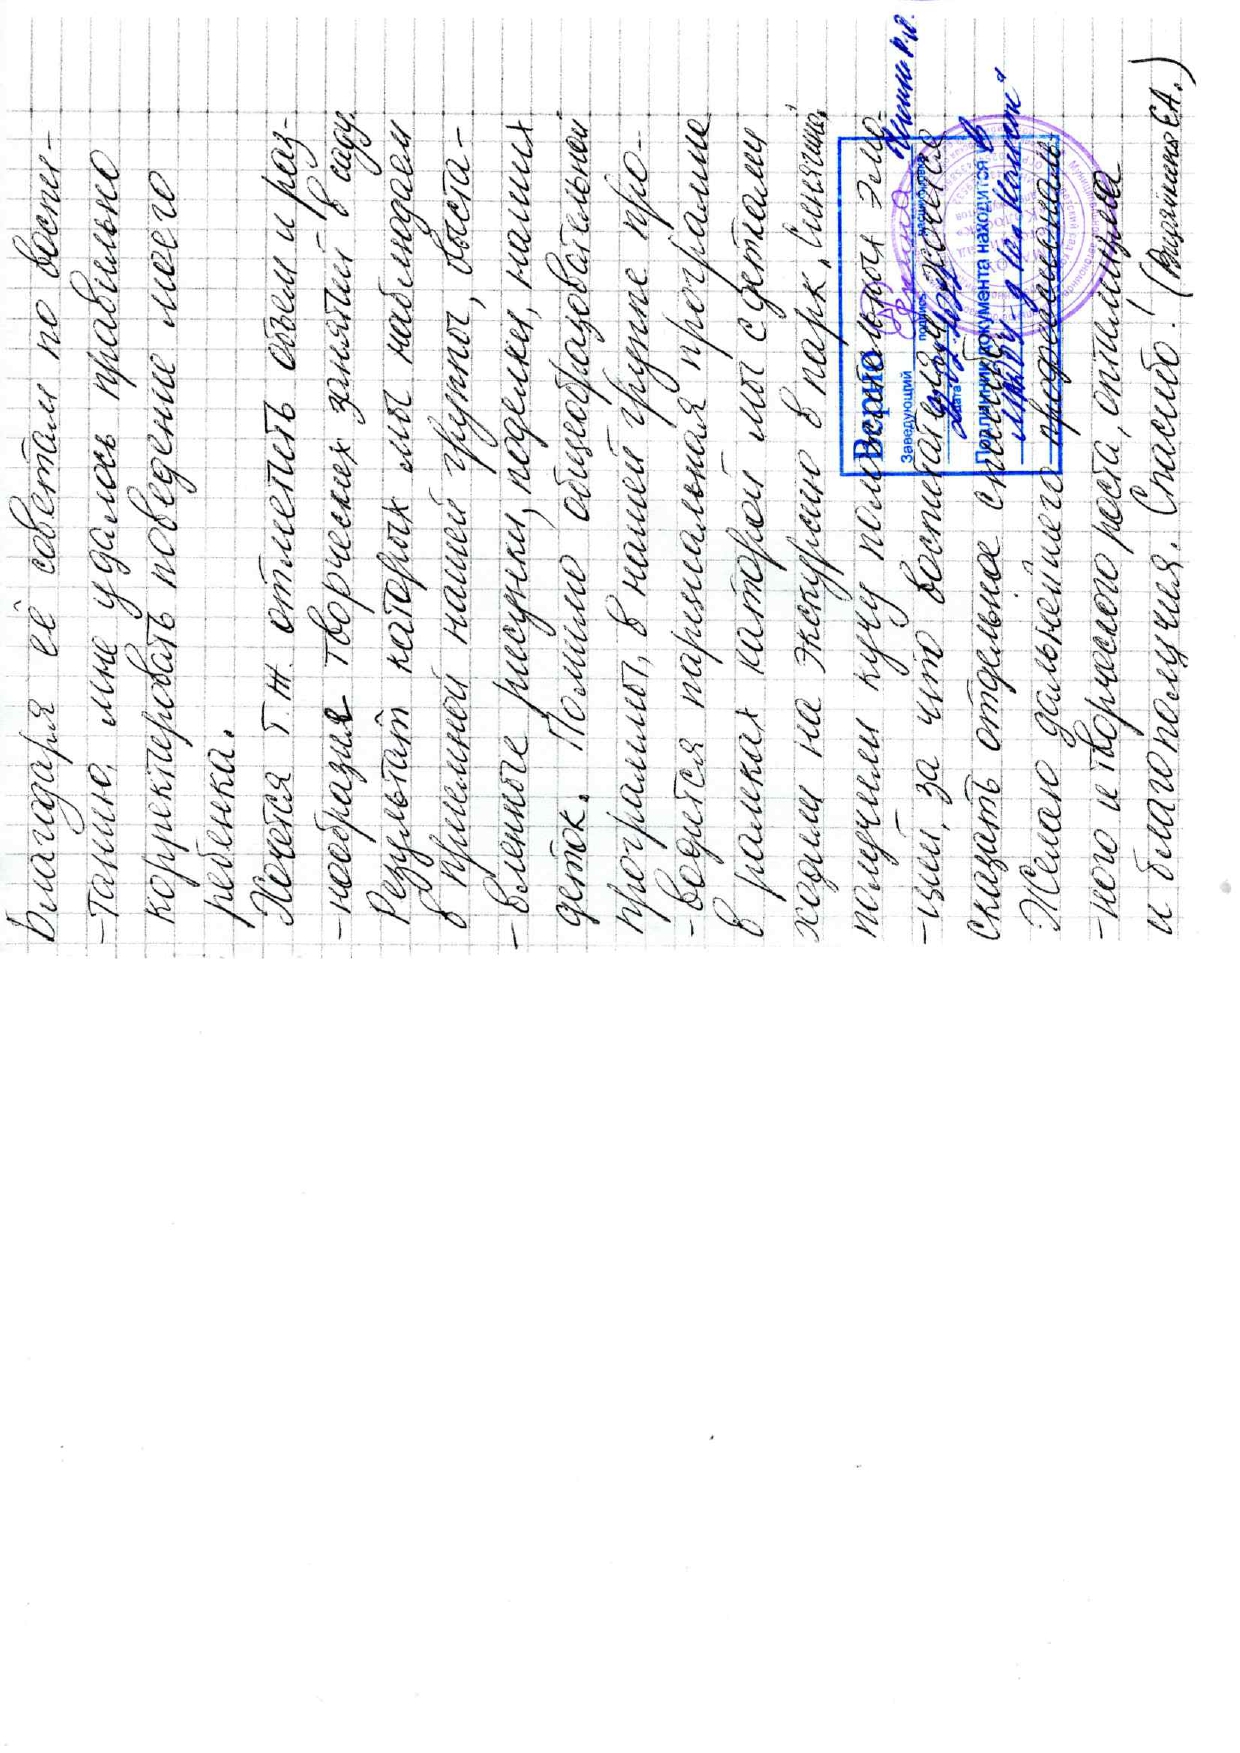 Благодаря её советам по воспи-
-танию, мне удалось правильно
корректировать поведение моего
ребенка.
Хочется т.ж. отметить объем и раз-
-нообразия творческих занятий в саду.
Результат которых мы наблюдаем
в приемной нашей группы, выста-
-вленные рисунки, поделки, наших
деток. Помимо общеобразовательной
программы, в нашей группе про-
-водется парциальная программа
в рамках каторой мы с детьми
ходим на экскурсию в парк,
получаем кучу положительных эмо-
-ций, за что воспитателям хочется
сказать отдельное спасибо.
Желаю дальнейшего профессиональ-
-ного и творческого роста, оптимизма
и благополучия. Спасибо!
Верно
Заведующий
подпись
расшифровка
дата
Подлинник документа находится в